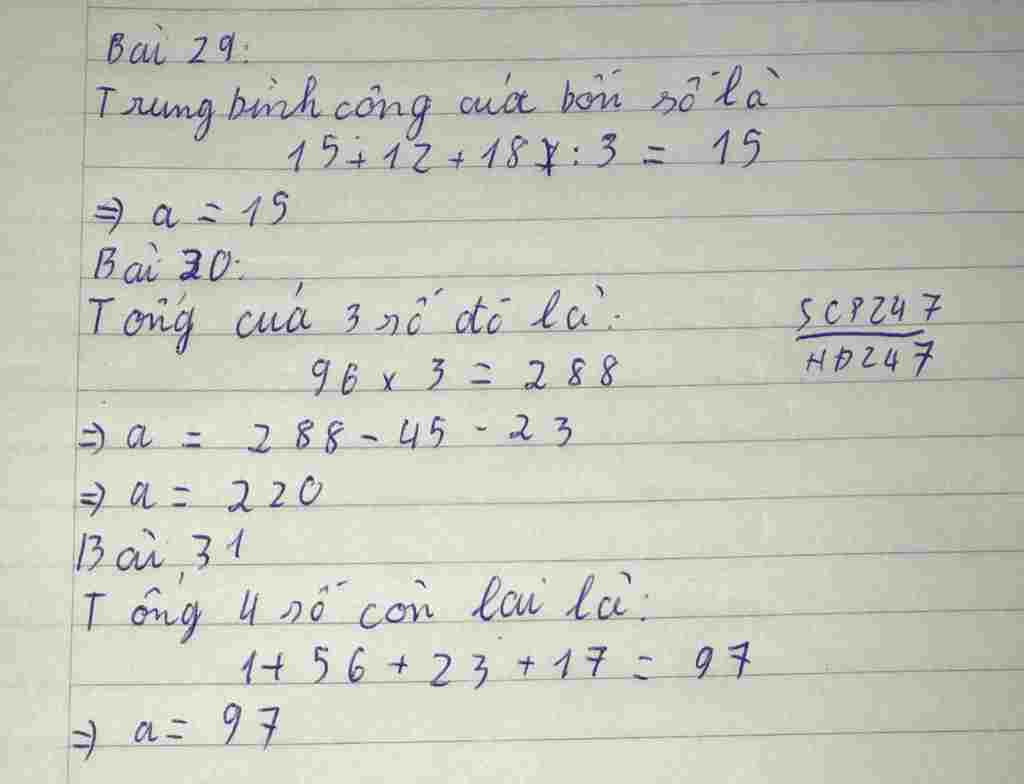 Bài 29:
Trung bình cộng của bốn số là
15 + 12 + 18 : 3 = 15
⇒ a = 15
Bài 30:
Tổng của 3 số đó là:
96 x 3 = 288
SCP247
HD247
⇒ a = 288 - 45 - 23
⇒ a = 220
Bài 31
Tổng 4 số còn lại là:
1 + 56 + 23 + 17 = 97
⇒ a = 97